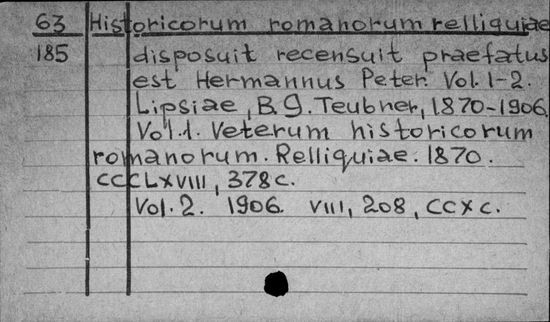 63 Historicorum romanorum relliquiae
185 disposuit recensuit praefatus
est Hermannus Peter. Vol. 1-2.
Lipsiae, B. G. Teubner, 1870-1906.
Vol. 1. Veterum historicorum
romanorum. Relliquiae. 1870.
CCCLXVIII, 378 c.
Vol. 2. 1906. VIII, 208, CCX c.